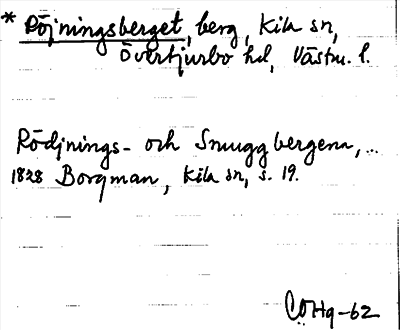 * Röjningsberget, berg, Kila sn,
Övertjurbo hd, Västm. l.
Rödjnings- och Smuggbergena, ...
1828 Borgman, Kila sn, s. 19.
CÖHg-62